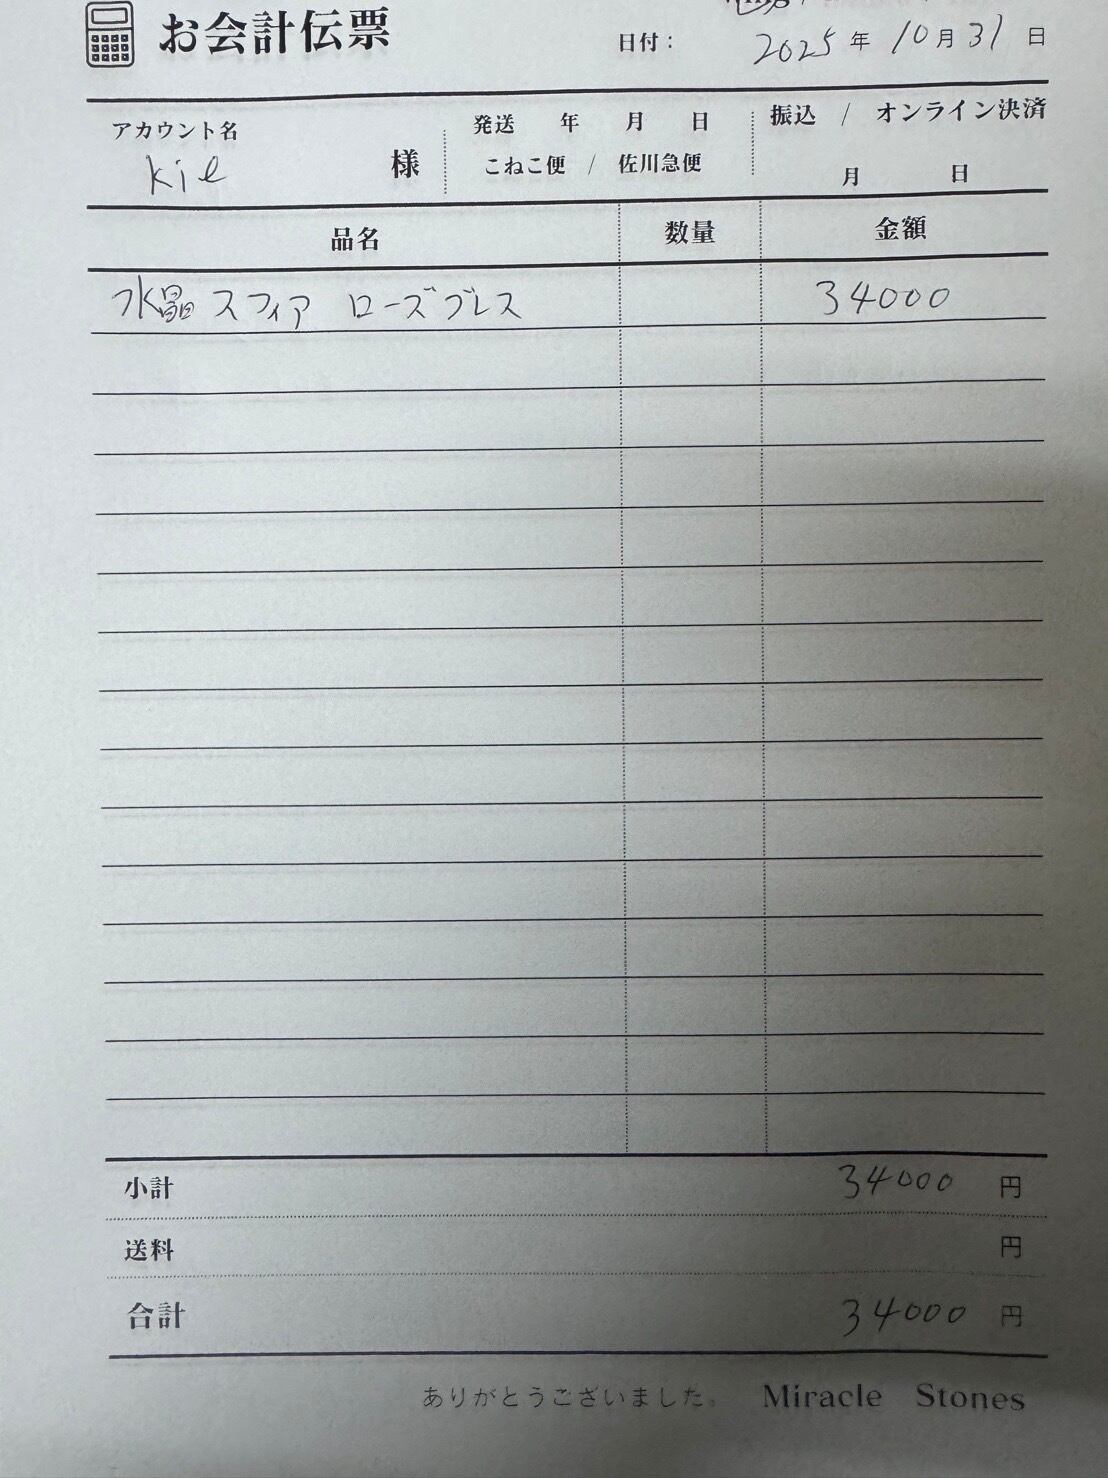 お会計伝票
日付： 2025年 10月 31日
アカウント名 発送 年 月 日 振込 / オンライン決済
kie 様 こねこ便 / 佐川急便 月 日
品名 数量 金額
水晶 スフィア ローズブレス 34000
小計 34000 円
送料 円
合計 34000 円
ありがとうございました。 Miracle Stones